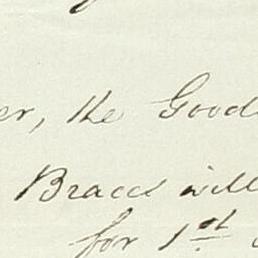 er, the Goods
Braces will
for 1st